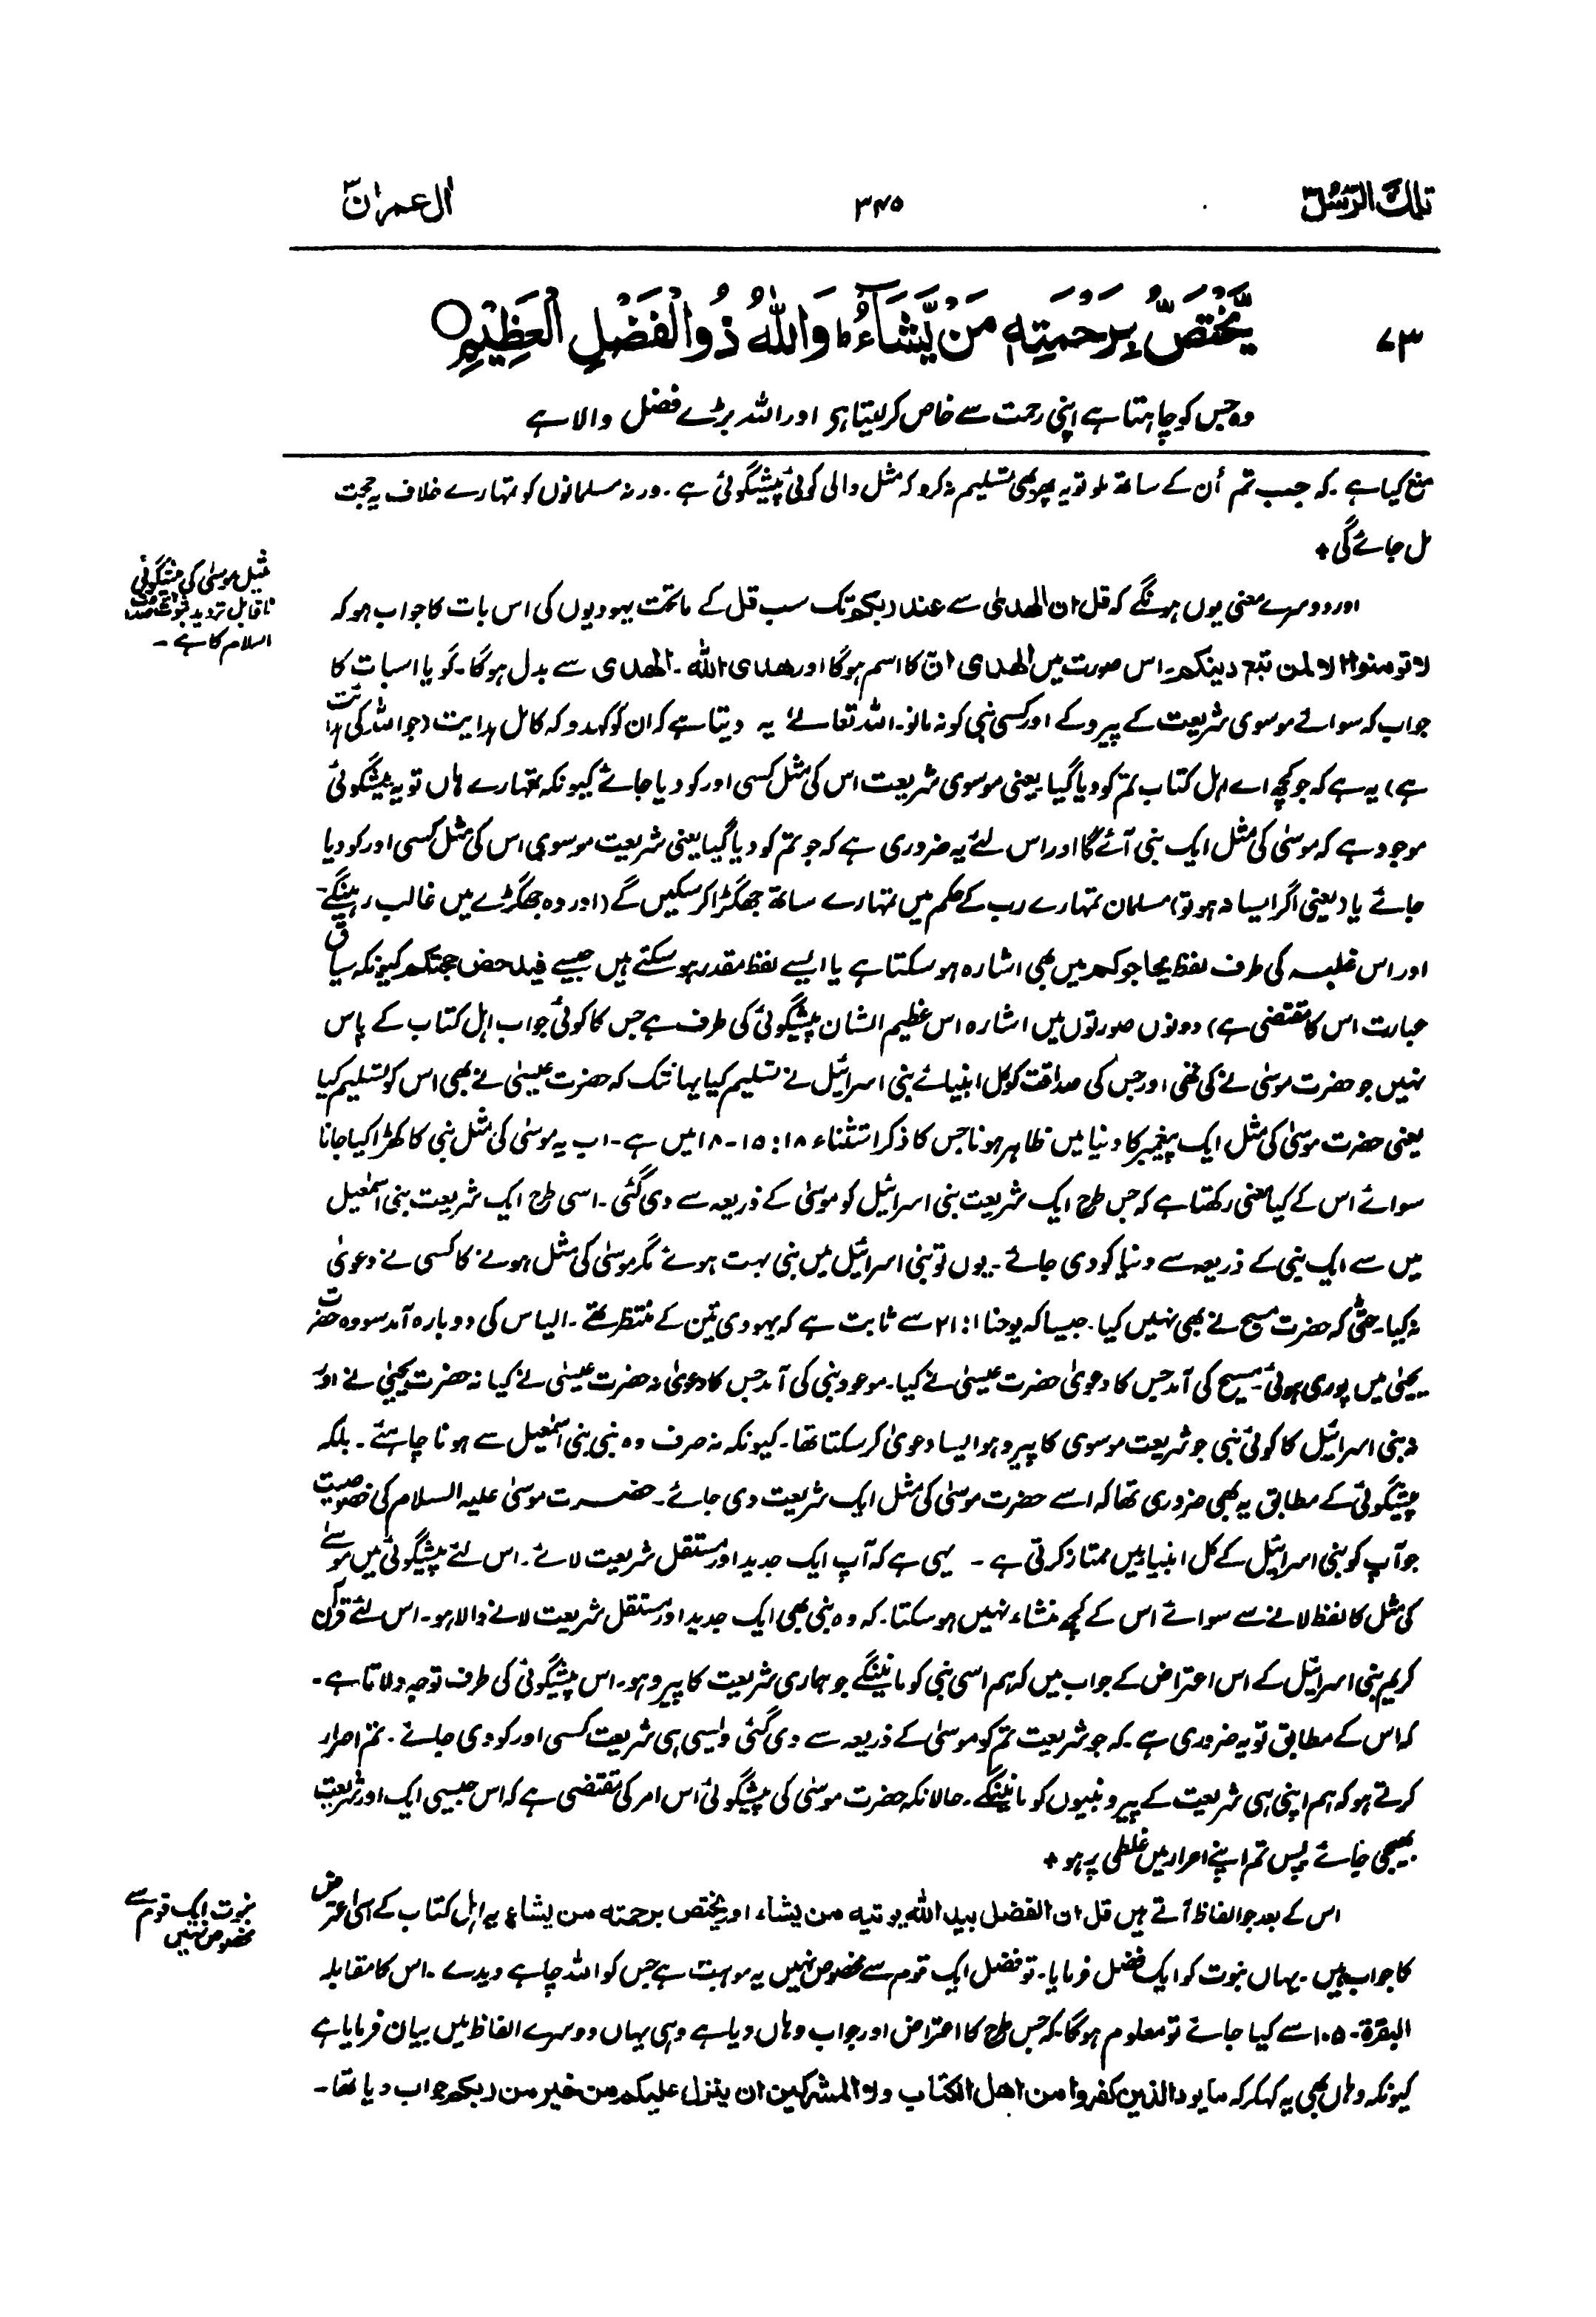 تلك الرسل ۳
۳۴۵
ال عمران ۳
۷۳
يَّخْتَصُّ بِرَحْمَتِهٖ مَنْ يَّشَآءُ ؕ وَاللّٰهُ ذُو الْفَضْلِ الْعَظِيْمِ ○
وہ جس کو چاہتا ہے اپنی رحمت سے خاص کر لیتا ہو اور اللہ بڑے فضل والا ہے
منع کیا ہے۔ کہ جب تم اُن کے ساتھ ملو تو یہ پھر بھی تسلیم نہ کرو کہ مثل والی کوئی پیشگوئی ہے۔ ورنہ مسلمانوں کو تمہارے خلاف یہ حجت
مل جائے گی +
مثیل موسیٰ کی پیشگوئی
ناقابل تردید ثبوت صداقت
اسلام کا ہے ۔
اور دوسرے معنی یوں ہونگے کہ قل ان الھدیٰ سے عند ربکم تک سب قل کے ماتحت یہودیوں کی اس بات کا جواب ہو کہ
لا تومنوا الا لمن تبع دینکم۔ اس صورت میں الھدی انّ کا اسم ہوگا اور ھدی اللہ ۔ الھدی سے بدل ہوگا۔ گویا اسبات کا
جواب کہ سوائے موسوی شریعت کے پیرو کے اور کسی نبی کو نہ مانو۔ اللہ تعالےٰ یہ دیتا ہے کہ ان کو کہدو کہ کامل ہدایت (جو اللہ کی ہدائت
ہے) یہ ہے کہ جو کچھ اے اہل کتاب تم کو دیا گیا یعنی موسوی شریعت اس کی مثل کسی اور کو دیا جائے کیونکہ تمہارے ہاں تو یہ پیشگوئی
موجود ہے کہ موسیٰ کی مثل ایک نبی آئے گا اور اس لئے یہ ضروری ہے کہ جو تم کو دیا گیا یعنی شریعت موسوی اس کی مثل کسی اور کو دیا
جائے یا (یعنی اگر ایسا نہ ہو تو) مسلمان تمہارے رب کے حکم میں تمہارے ساتھ جھگڑا کر سکیں گے (اور وہ جھگڑے میں غالب رہینگے۔
اور اس غلبہ کی طرف لفظ یحاجوکم میں بھی اشارہ ہو سکتا ہے یا ایسے لفظ مقدر ہو سکتے ہیں جیسے فیدحض حجتکم کیونکہ سیاق
عبارت اس کا مقتضی ہے) دونوں صورتوں میں اشارہ اس عظیم الشان پیشگوئی کی طرف ہے جس کا کوئی جواب اہل کتاب کے پاس
نہیں جو حضرت موسیٰ نے کی تھی اور جس کی صداقت کو کل انبیائے بنی اسرائیل نے تسلیم کیا یہانتک کہ حضرت عیسیٰ نے بھی اس کو تسلیم کیا
یعنی حضرت موسیٰ کی مثل ایک پیغمبر کا دنیا میں ظاہر ہونا جس کا ذکر استثناء ۱۸: ۱۵-۱۸ میں ہے۔ اب یہ موسیٰ کی مثل نبی کا کھڑا کیا جانا
سوائے اس کے کیا معنی رکھتا ہے کہ جس طرح ایک شریعت بنی اسرائیل کو موسیٰ کے ذریعہ سے دی گئی۔ اسی طرح ایک شریعت بنی اسمٰعیل
میں سے ایک نبی کے ذریعہ سے دنیا کو دی جائے۔ یوں تو بنی اسرائیل میں نبی بہت ہوئے مگر موسیٰ کی مثل ہونے کا کسی نے دعویٰ
نہ کیا۔ حتیٰ کہ حضرت مسیح نے بھی نہیں کیا۔ جیسا کہ یوحنا ۱: ۲۱ سے ثابت ہے کہ یہودی تین کے منتظر تھے۔ الیاس کی دوبارہ آمد سو وہ حضرت
یحییٰ میں پوری ہوئی مسیح کی آمد جس کا دعویٰ حضرت عیسیٰ نے کیا۔ موعود نبی کی آمد جس کا دعویٰ نہ حضرت عیسیٰ نے کیا نہ حضرت یحییٰ نے اور
نہ بنی اسرائیل کا کوئی نبی جو شریعت موسوی کا پیرو ہو ایسا دعویٰ کر سکتا تھا۔ کیونکہ نہ صرف وہ نبی بنی اسمٰعیل سے ہونا چاہئے۔ بلکہ
پیشگوئی کے مطابق یہ بھی ضروری تھا کہ اسے حضرت موسیٰ کی مثل ایک شریعت دی جائے۔ حضرت موسیٰ علیہ السلام کی خصوصیت
جو آپ کو بنی اسرائیل کے کل انبیاء میں ممتاز کرتی ہے ۔ یہی ہے کہ آپ ایک جدید اور مستقل شریعت لائے۔ اس لئے پیشگوئی میں موسےٰ
کی مثل کا لفظ لانے سے سوائے اس کے کچھ منشاء نہیں ہو سکتا۔ کہ وہ نبی بھی ایک جدید اور مستقل شریعت لانے والا ہو۔ اس لئے قرآن
کریم بنی اسرائیل کے اس اعتراض کے جواب میں کہ ہم اسی نبی کو مانینگے جو ہماری شریعت کا پیرو ہو۔ اس پیشگوئی کی طرف توجہ دلاتا ہے۔
کہ اس کے مطابق تو یہ ضروری ہے۔ کہ جو شریعت تم کو موسیٰ کے ذریعہ سے دی گئی ویسی ہی شریعت کسی اور کو دی جائے۔ تم اصرار
کرتے ہو کہ ہم اپنی ہی شریعت کے پیرو نبیوں کو مانینگے۔ حالانکہ حضرت موسیٰ کی پیشگوئی اس امر کی مقتضی ہے کہ اس جیسی ایک اور شریعت
بھیجی جائے پس تم اپنے اصرار میں غلطی پر ہو +
نبوت ایک قوم سے
مخصوص نہیں
اس کے بعد جو الفاظ آتے ہیں قل ان الفضل بید اللہ یوتیہ من یشاء اور یختص برحمتہ من یشاء یہ اہل کتاب کے اسی اعتراض
کا جواب ہیں۔ یہاں نبوت کو ایک فضل فرمایا۔ تو فضل ایک قوم سے مخصوص نہیں یہ موہبت ہے جس کو اللہ چاہے دیدے۔ اس کا مقابلہ
البقرۃ۔۱۰۵ سے کیا جائے تو معلوم ہوگا۔ کہ جس طرح کا اعتراض اور جواب وہاں دیا ہے وہی یہاں دوسرے الفاظ میں بیان فرمایا ہے
کیونکہ وہاں بھی یہ کہکر کہ ما یود الذین کفروا من اھل الکتاب ولا المشرکین ان ینزل علیکم من خیر من ربکم جواب دیا تھا۔